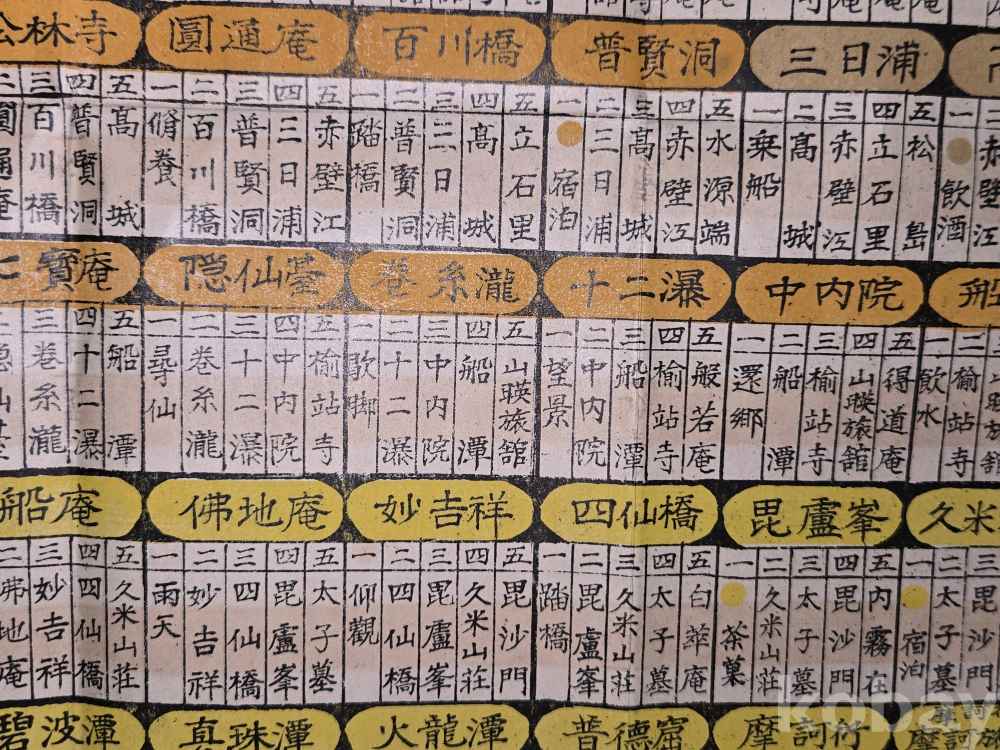 林寺
圓通庵
百川橋
普賢洞
三日浦
二 圓通庵
三 百川橋
四 普賢洞
五 高城
一 脩養
二 百川橋
三 普賢洞
四 三日浦
五 赤壁江
一 踏橋
二 普賢洞
三 三日浦
四 高城
五 立石里
一 宿泊
二 三日浦
三 高城
四 赤壁江
五 水源端
一 乗船
二 高城
三 赤壁江
四 立石里
五 松島
一 飲酒
二 赤壁江
七寶庵
隠仙臺
巻糸瀧
十二瀑
中内院
船
二 隠仙臺
三 巻糸瀧
四 十二瀑
五 船潭
一 尋仙
二 巻糸瀧
三 十二瀑
四 中内院
五 榆站寺
一 歇脚
二 十二瀑
三 中内院
四 船潭
五 山暎旅舘
一 望景
二 中内院
三 船潭
四 榆站寺
五 般若庵
一 還郷
二 船潭
三 榆站寺
四 山暎旅舘
五 得道庵
一 飲水
二 榆站寺
三 山暎旅舘
船庵
佛地庵
妙吉祥
四仙橋
毘盧峯
久米
二 佛地庵
三 妙吉祥
四 四仙橋
五 久米山莊
一 雨天
二 妙吉祥
三 四仙橋
四 毘盧峯
五 太子墓
一 仰觀
二 四仙橋
三 毘盧峯
四 久米山莊
五 毘沙門
一 踏橋
二 毘盧峯
三 久米山莊
四 太子墓
五 白華庵
一 茶菓
二 久米山莊
三 太子墓
四 毘沙門
五 内霧在
一 宿泊
二 太子墓
三 毘沙門
碧波潭
真珠潭
火龍潭
普德窟
摩訶衍
kobay
摩訶衍